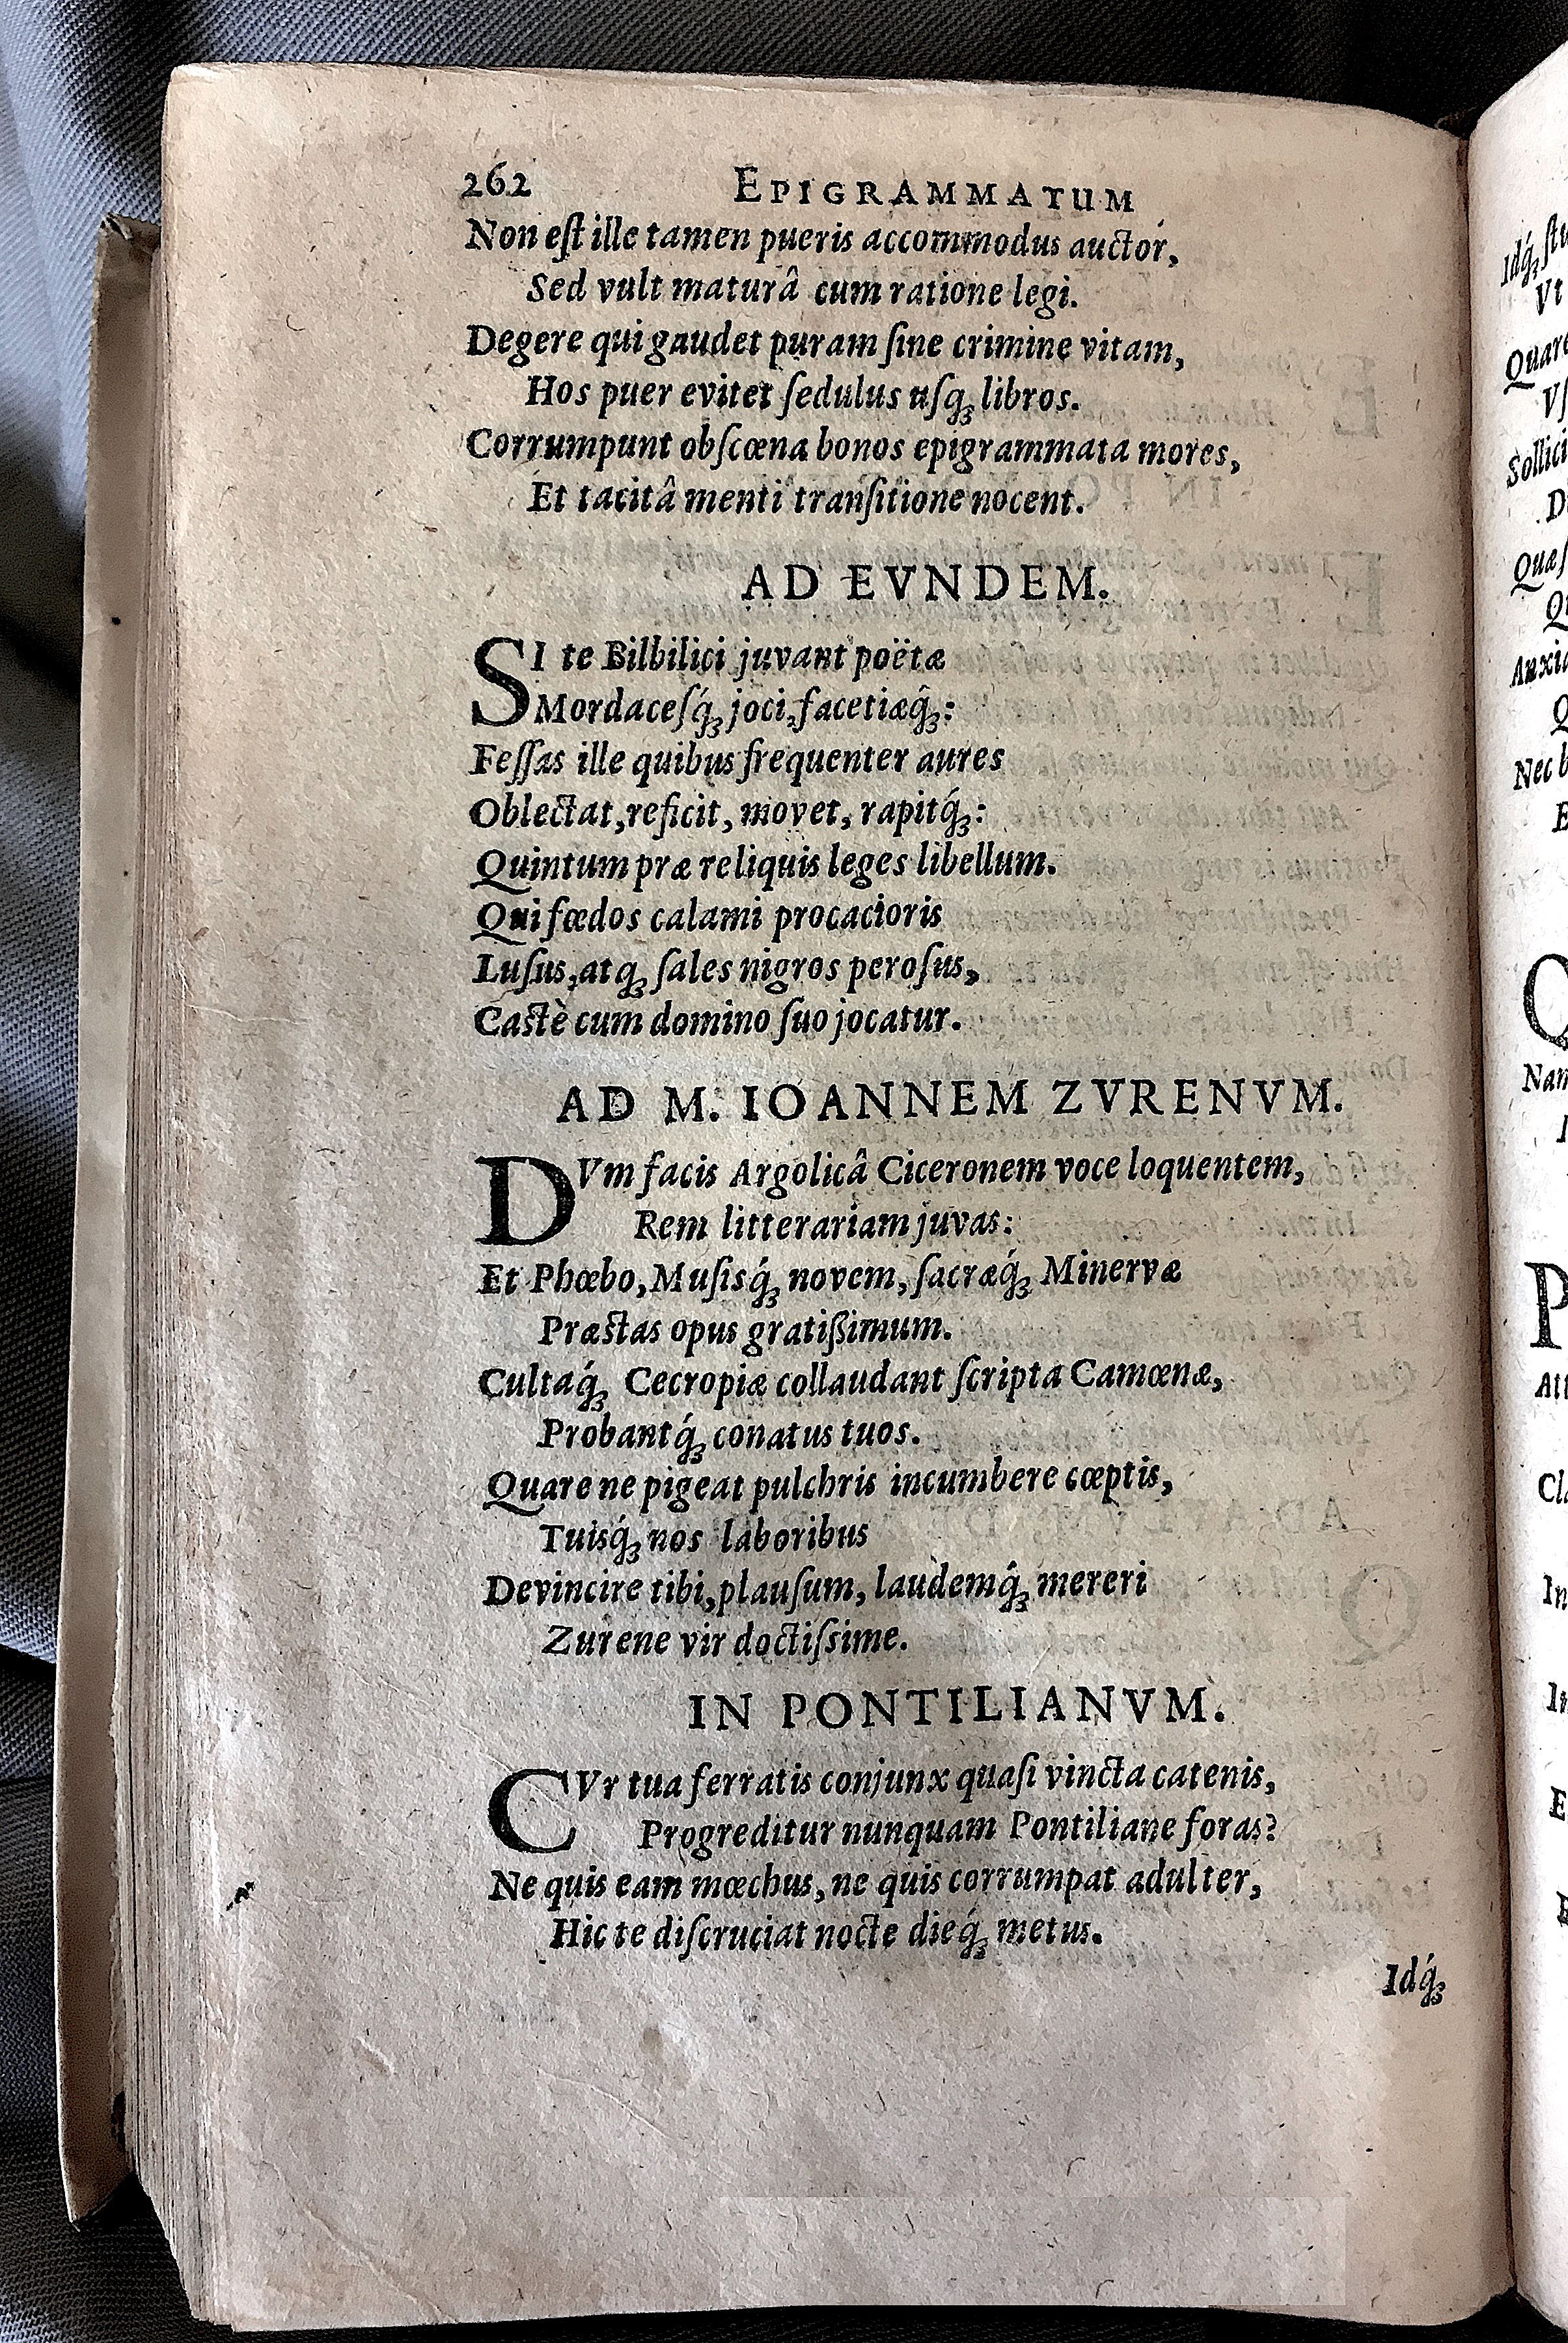 262 EPIGRAMMATUM
Non eſt ille tamen pueris accommodus auctor,
Sed vult maturâ cum ratione legi.
Degere qui gaudet puram ſine crimine vitam,
Hos puer evitet ſedulus uſq́ꝫ libros.
Corrumpunt obſcœna bonos epigrammata mores,
Et tacitâ menti tranſitione nocent.
AD EVNDEM.
SI te Bilbilici juvant poëtæ
Mordaceſq́ꝫ joci, facetiæq́ꝫ:
Feſſas ille quibus frequenter aures
Oblectat, reficit, movet, rapitq́ꝫ:
Quintum præ reliquis leges libellum.
Qui fœdos calami procacioris
Luſus, atqꝫ ſales nigros peroſus,
Castè cum domino ſuo jocatur.
AD M. IOANNEM ZVRENVM.
DVm facis Argolicâ Ciceronem voce loquentem,
Rem litterariam juvas:
Et Phœbo, Muſisq́ꝫ novem, ſacræq́ꝫ Minervæ
Præstas opus gratißimum.
Cultaq́ꝫ Cecropiæ collaudant ſcripta Camœnæ,
Probantq́ꝫ conatus tuos.
Quare ne pigeat pulchris incumbere cœptis,
Tuisq́ꝫ nos laboribus
Devincire tibi, plauſum, laudemq́ꝫ mereri
Zurene vir doctiſsime.
IN PONTILIANVM.
CVr tua ferratis conjunx quaſi vincta catenis,
Progreditur nunquam Pontiliane foras?
Ne quis eam mœchus, ne quis corrumpat adulter,
Hic te diſcruciat nocte dieq́ꝫ metus.
Idq́ꝫ